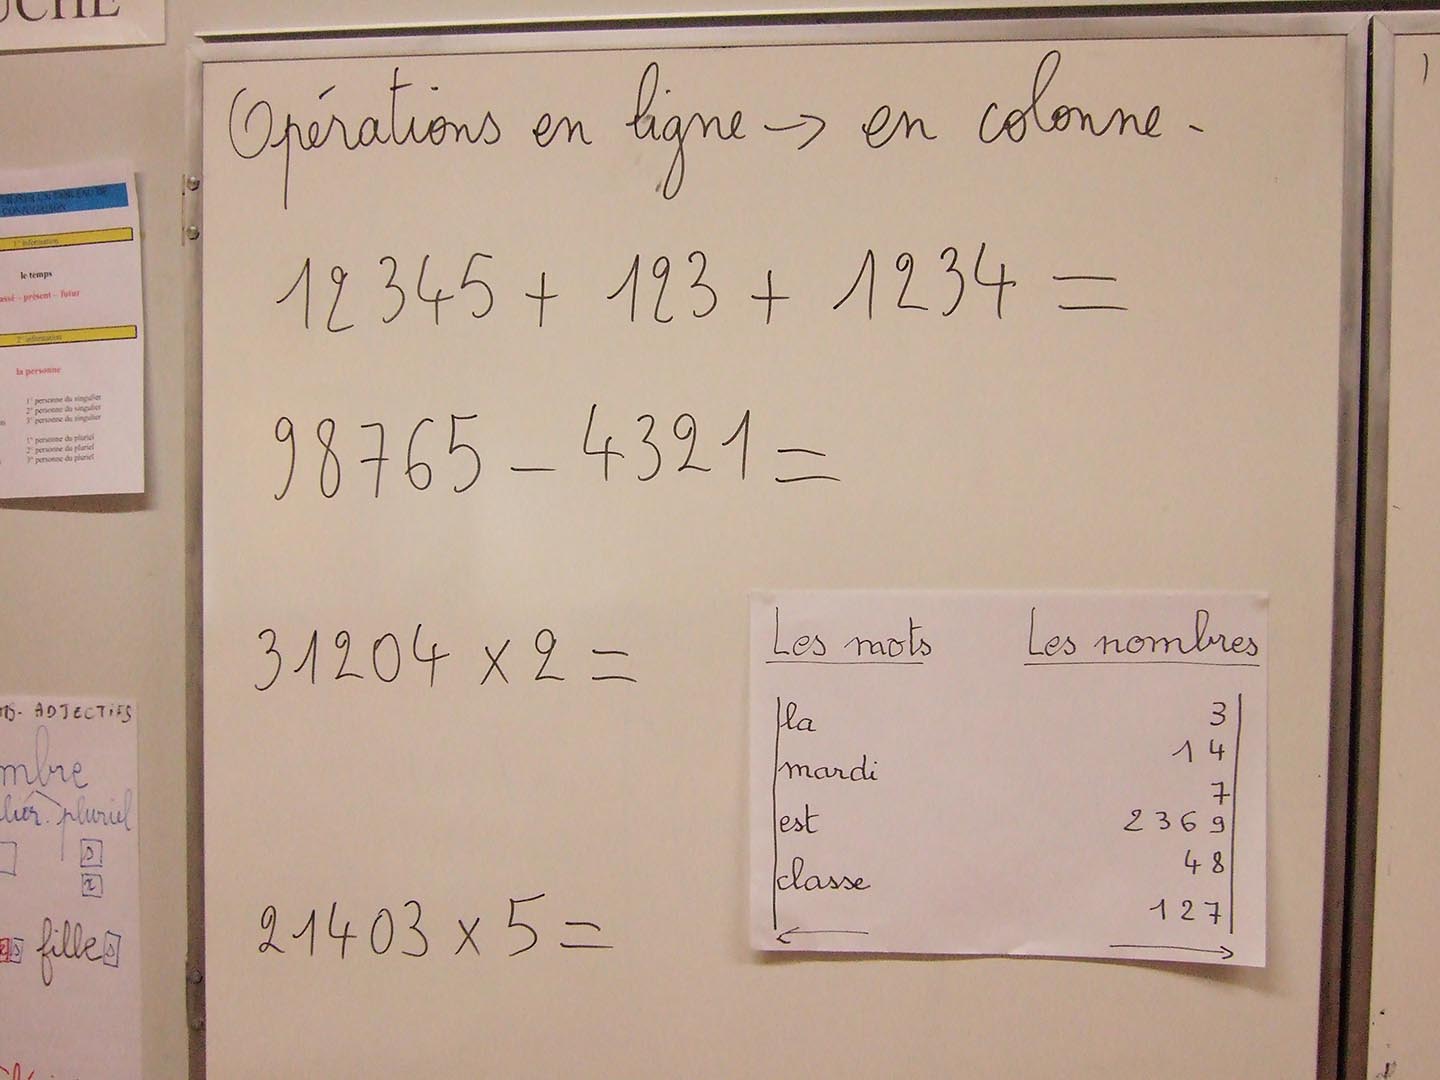 Opérations en ligne → en colonne.
12345 + 123 + 1234 =
98765 - 4321 =
31204 x 2 =
21403 x 5 =
Les mots Les nombres
la 3
mardi 14
7
est 2369
classe 48
127
1° information
le temps
passé – présent – futur
2° information
la personne
1° personne du singulier
2° personne du singulier
3° personne du singulier
1° personne du pluriel
2° personne du pluriel
3° personne du pluriel
ADJECTIFS
pluriel
s
x
fille s